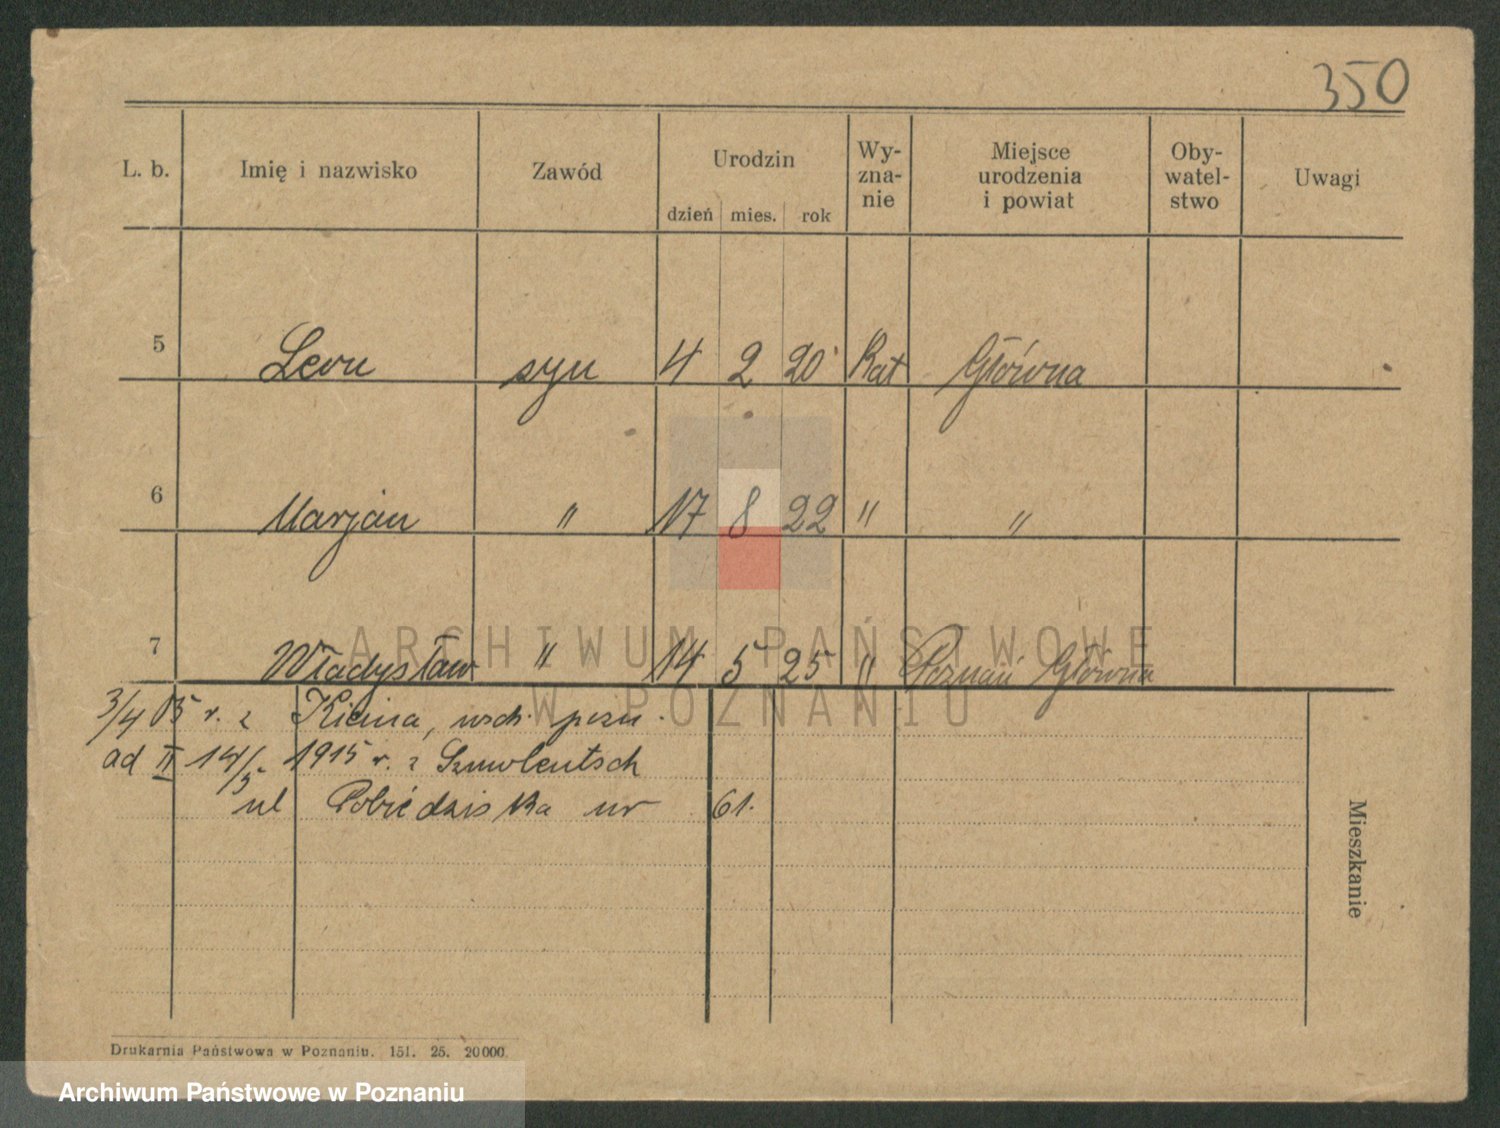 350
L. b. Imię i nazwisko Zawód Urodzin dzień mies. rok Wy- zna- nie Miejsce urodzenia i powiat Oby- watel- stwo Uwagi
5 Leon syn 4 2 20 Kat Główna
6 Marjan " 17 8 22 " "
7 Władysław " 14 5 25 " Poznań Główna
ARCHIWUM PAŃSTWOWE
W POZNANIU
3/4 05 r. z wsch. pozn.
ad II 14/5 1915 r. z
ul Pobiedziska nr 61.
Mieszkanie
Drukarnia Państwowa w Poznaniu. 151. 25. 20000.
Archiwum Państwowe w Poznaniu